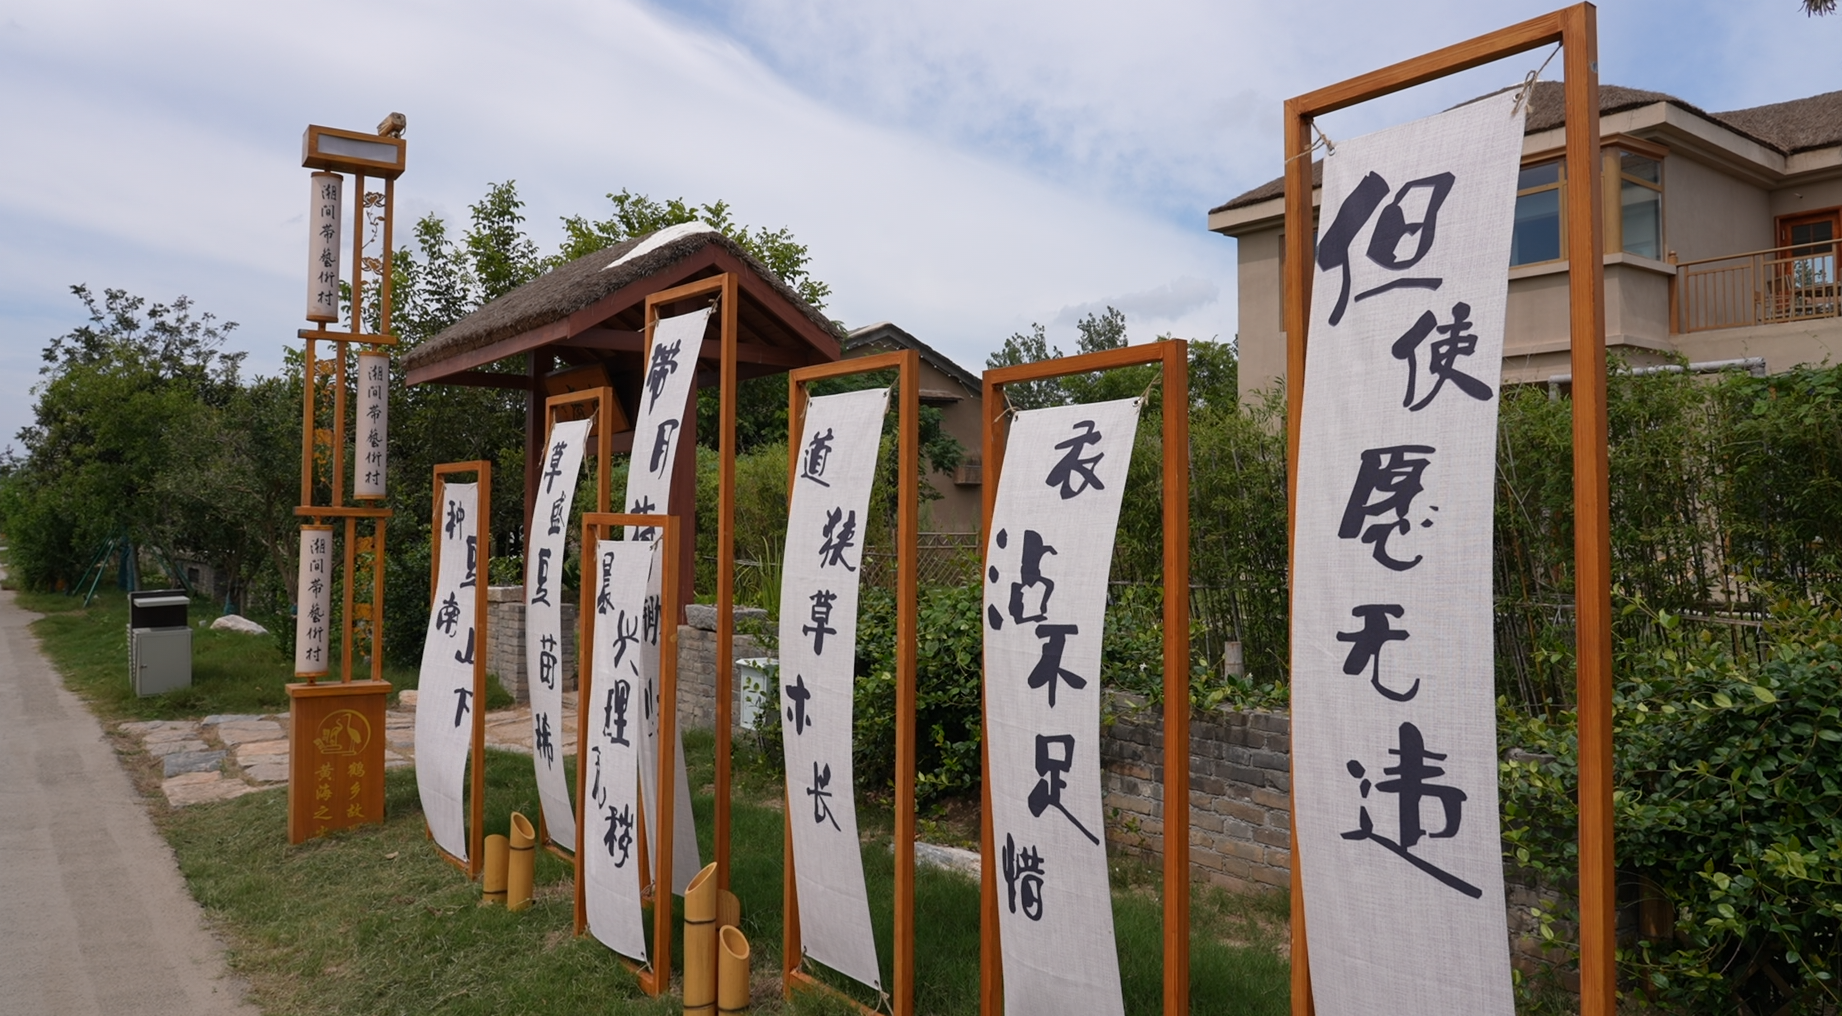 潮间带藝術村
潮间带藝術村
潮间带藝術村
鹤乡故
黄海之
种豆南山下
草盛豆苗稀
晨兴理荒秽
带月荷锄归
道狭草木长
衣沾不足惜
但使愿无违